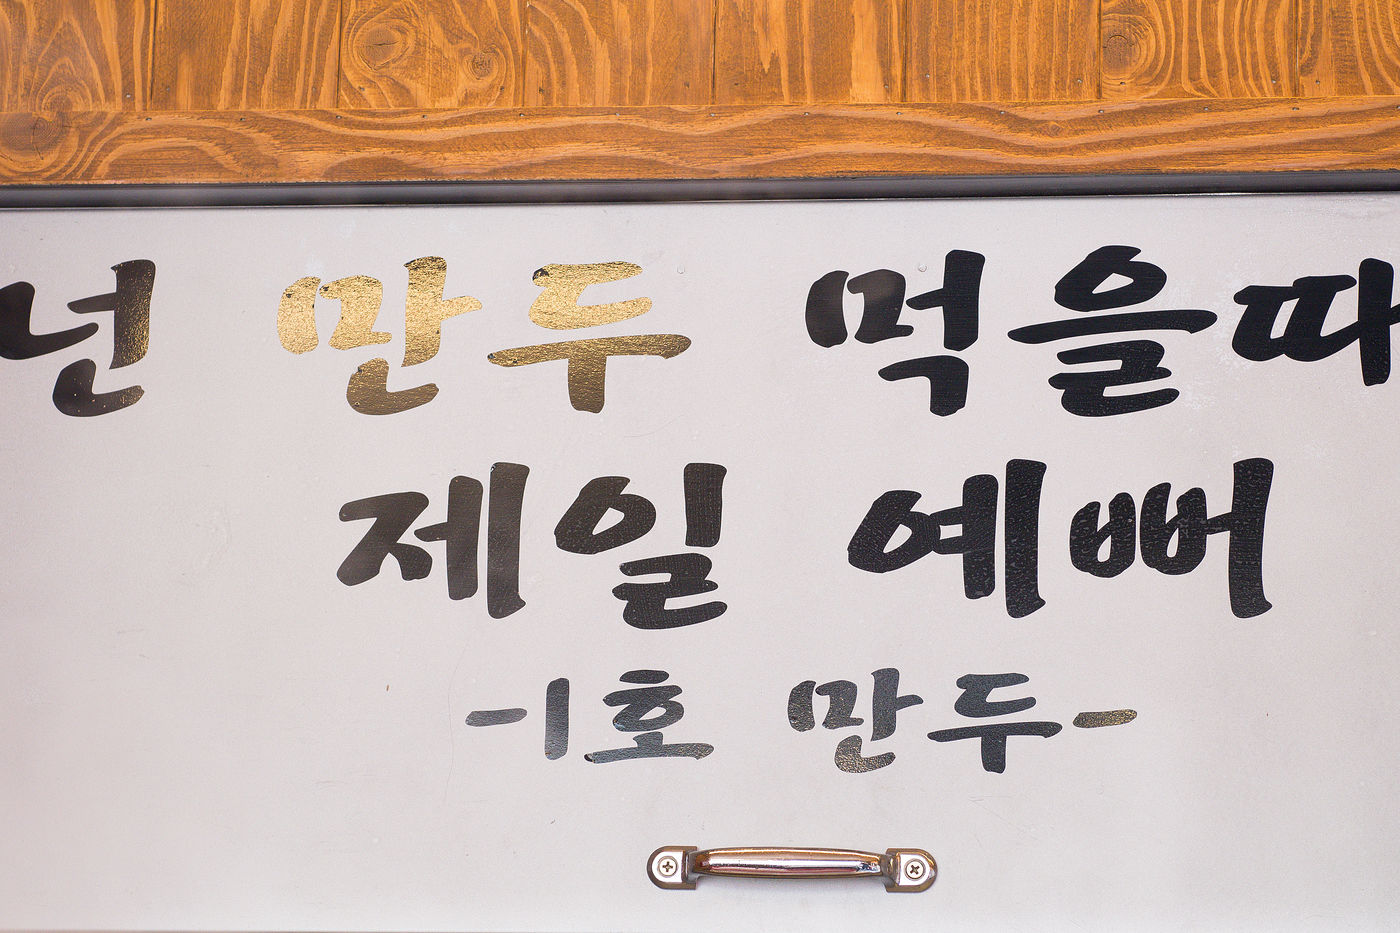 넌 만두 먹을따
제일 예뻐
-1호 만두-